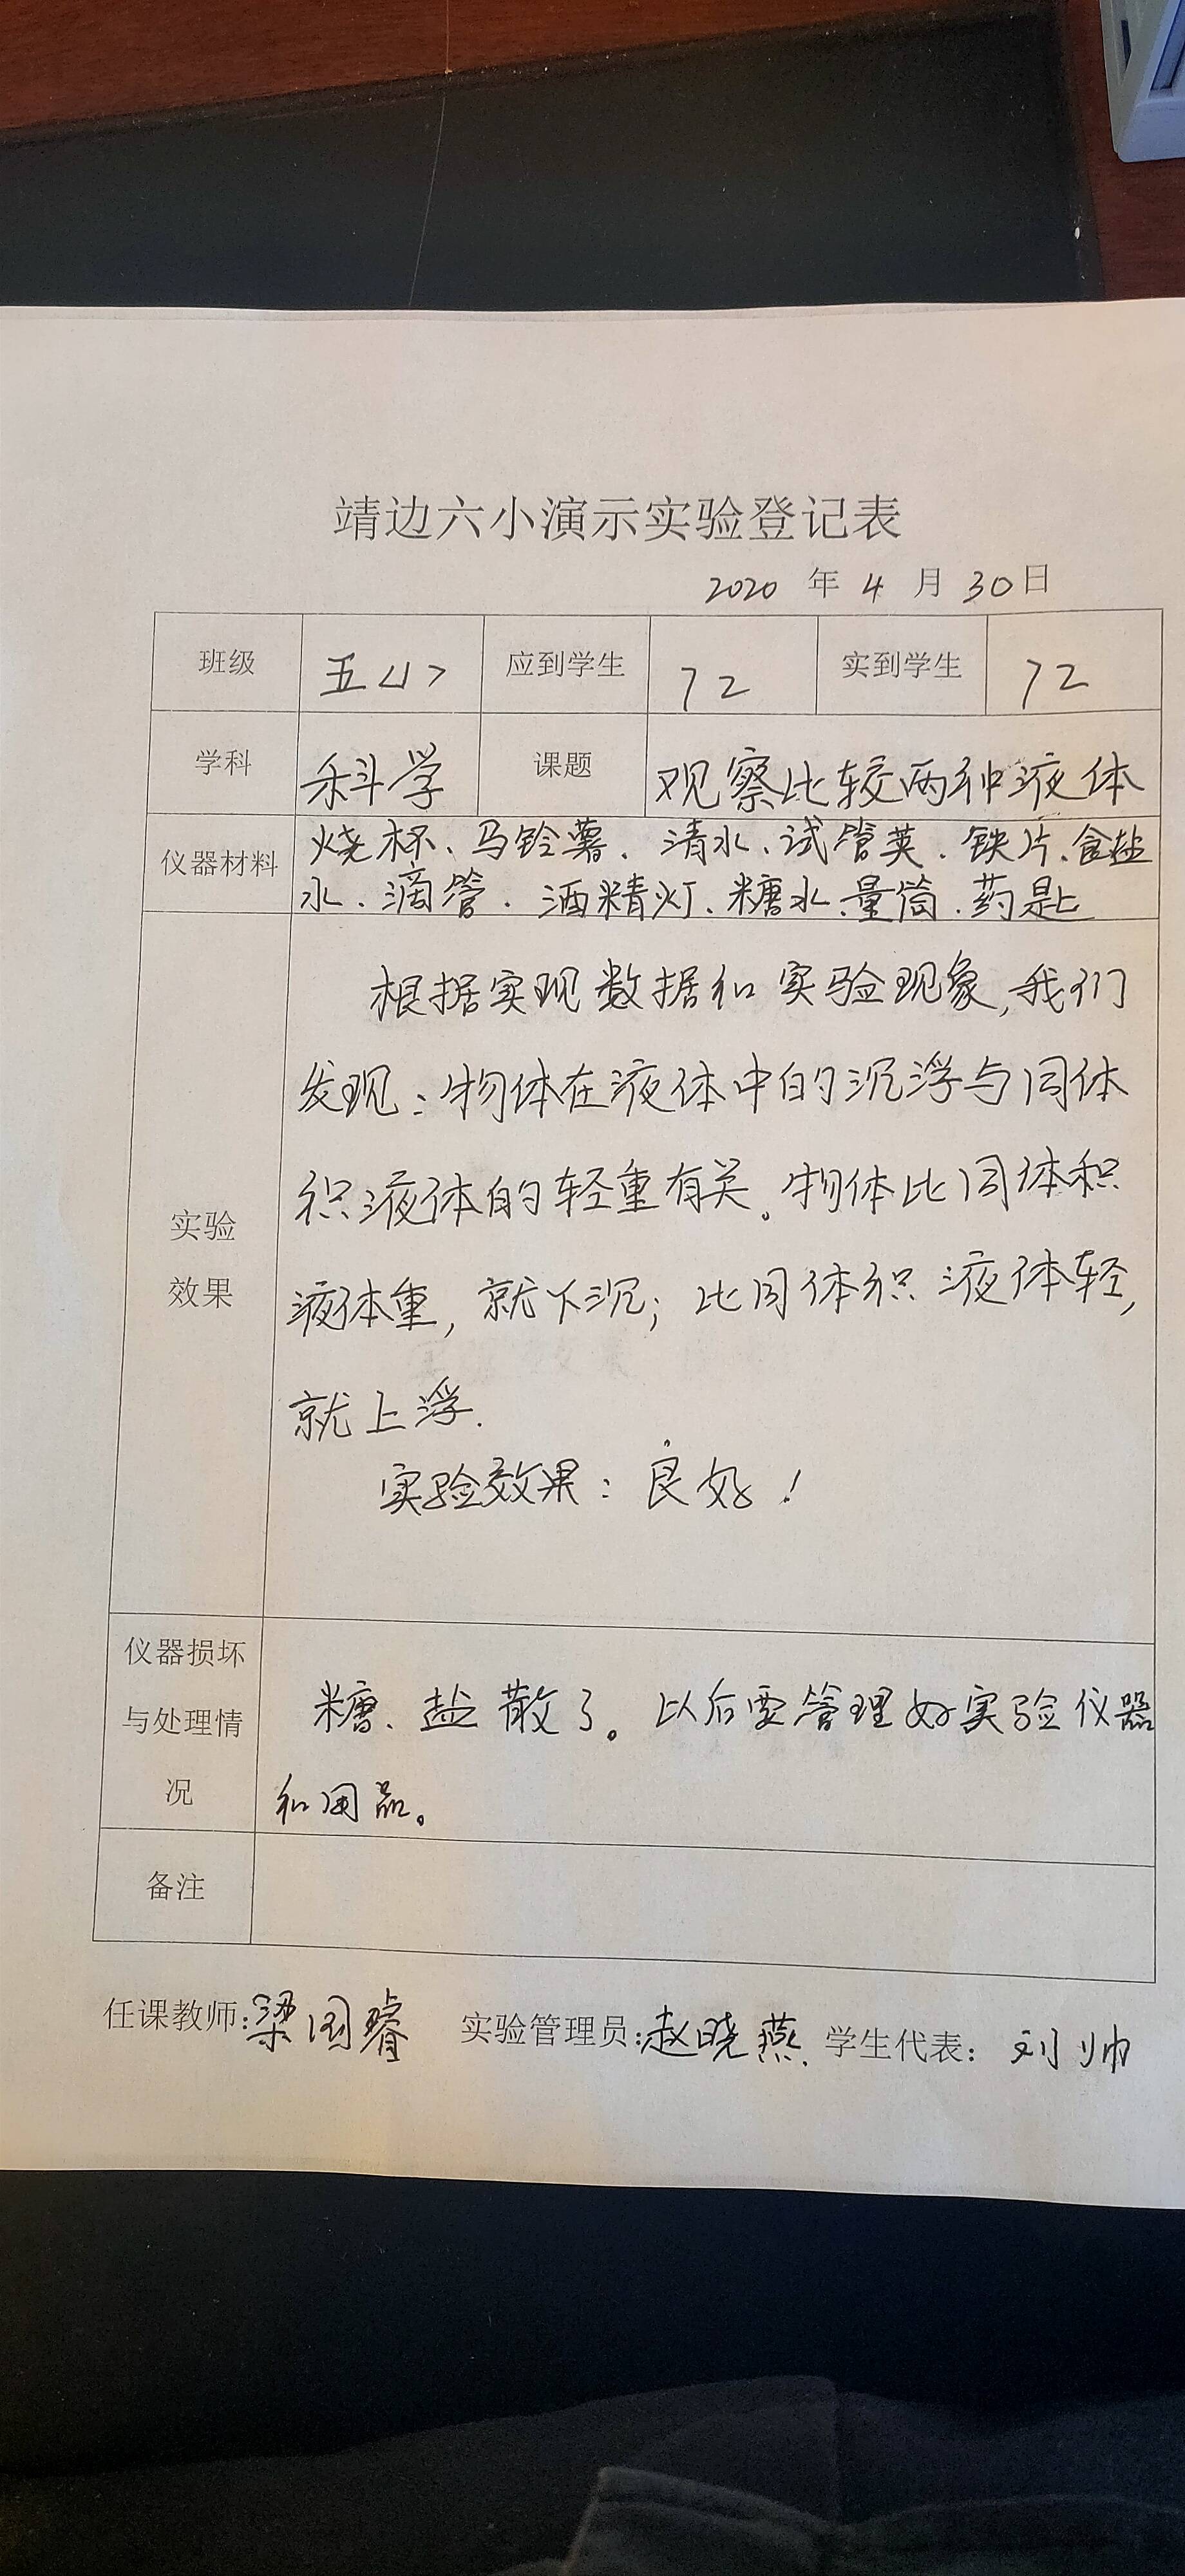 靖边六小演示实验登记表
2020 年 4 月 30日
班级 五<1> 应到学生 72 实到学生 72
学科 科学 课题 观察比较两种液体
仪器材料 烧杯、马铃薯、清水、试管荚、铁片、食盐
水、滴管、酒精灯、糖水、量筒、药匙
根据实现数据和实验现象,我们
发现:物体在液体中的沉浮与同体
积液体的轻重有关。物体比同体积
实验
效果
液体重,就下沉;比同体积液体轻,
就上浮.
实验效果:良好!
仪器损坏
与处理情
况
糖、盐散了。以后要管理好实验仪器
和用品。
备注
任课教师:梁国睿 实验管理员:赵晓燕. 学生代表: 刘帅